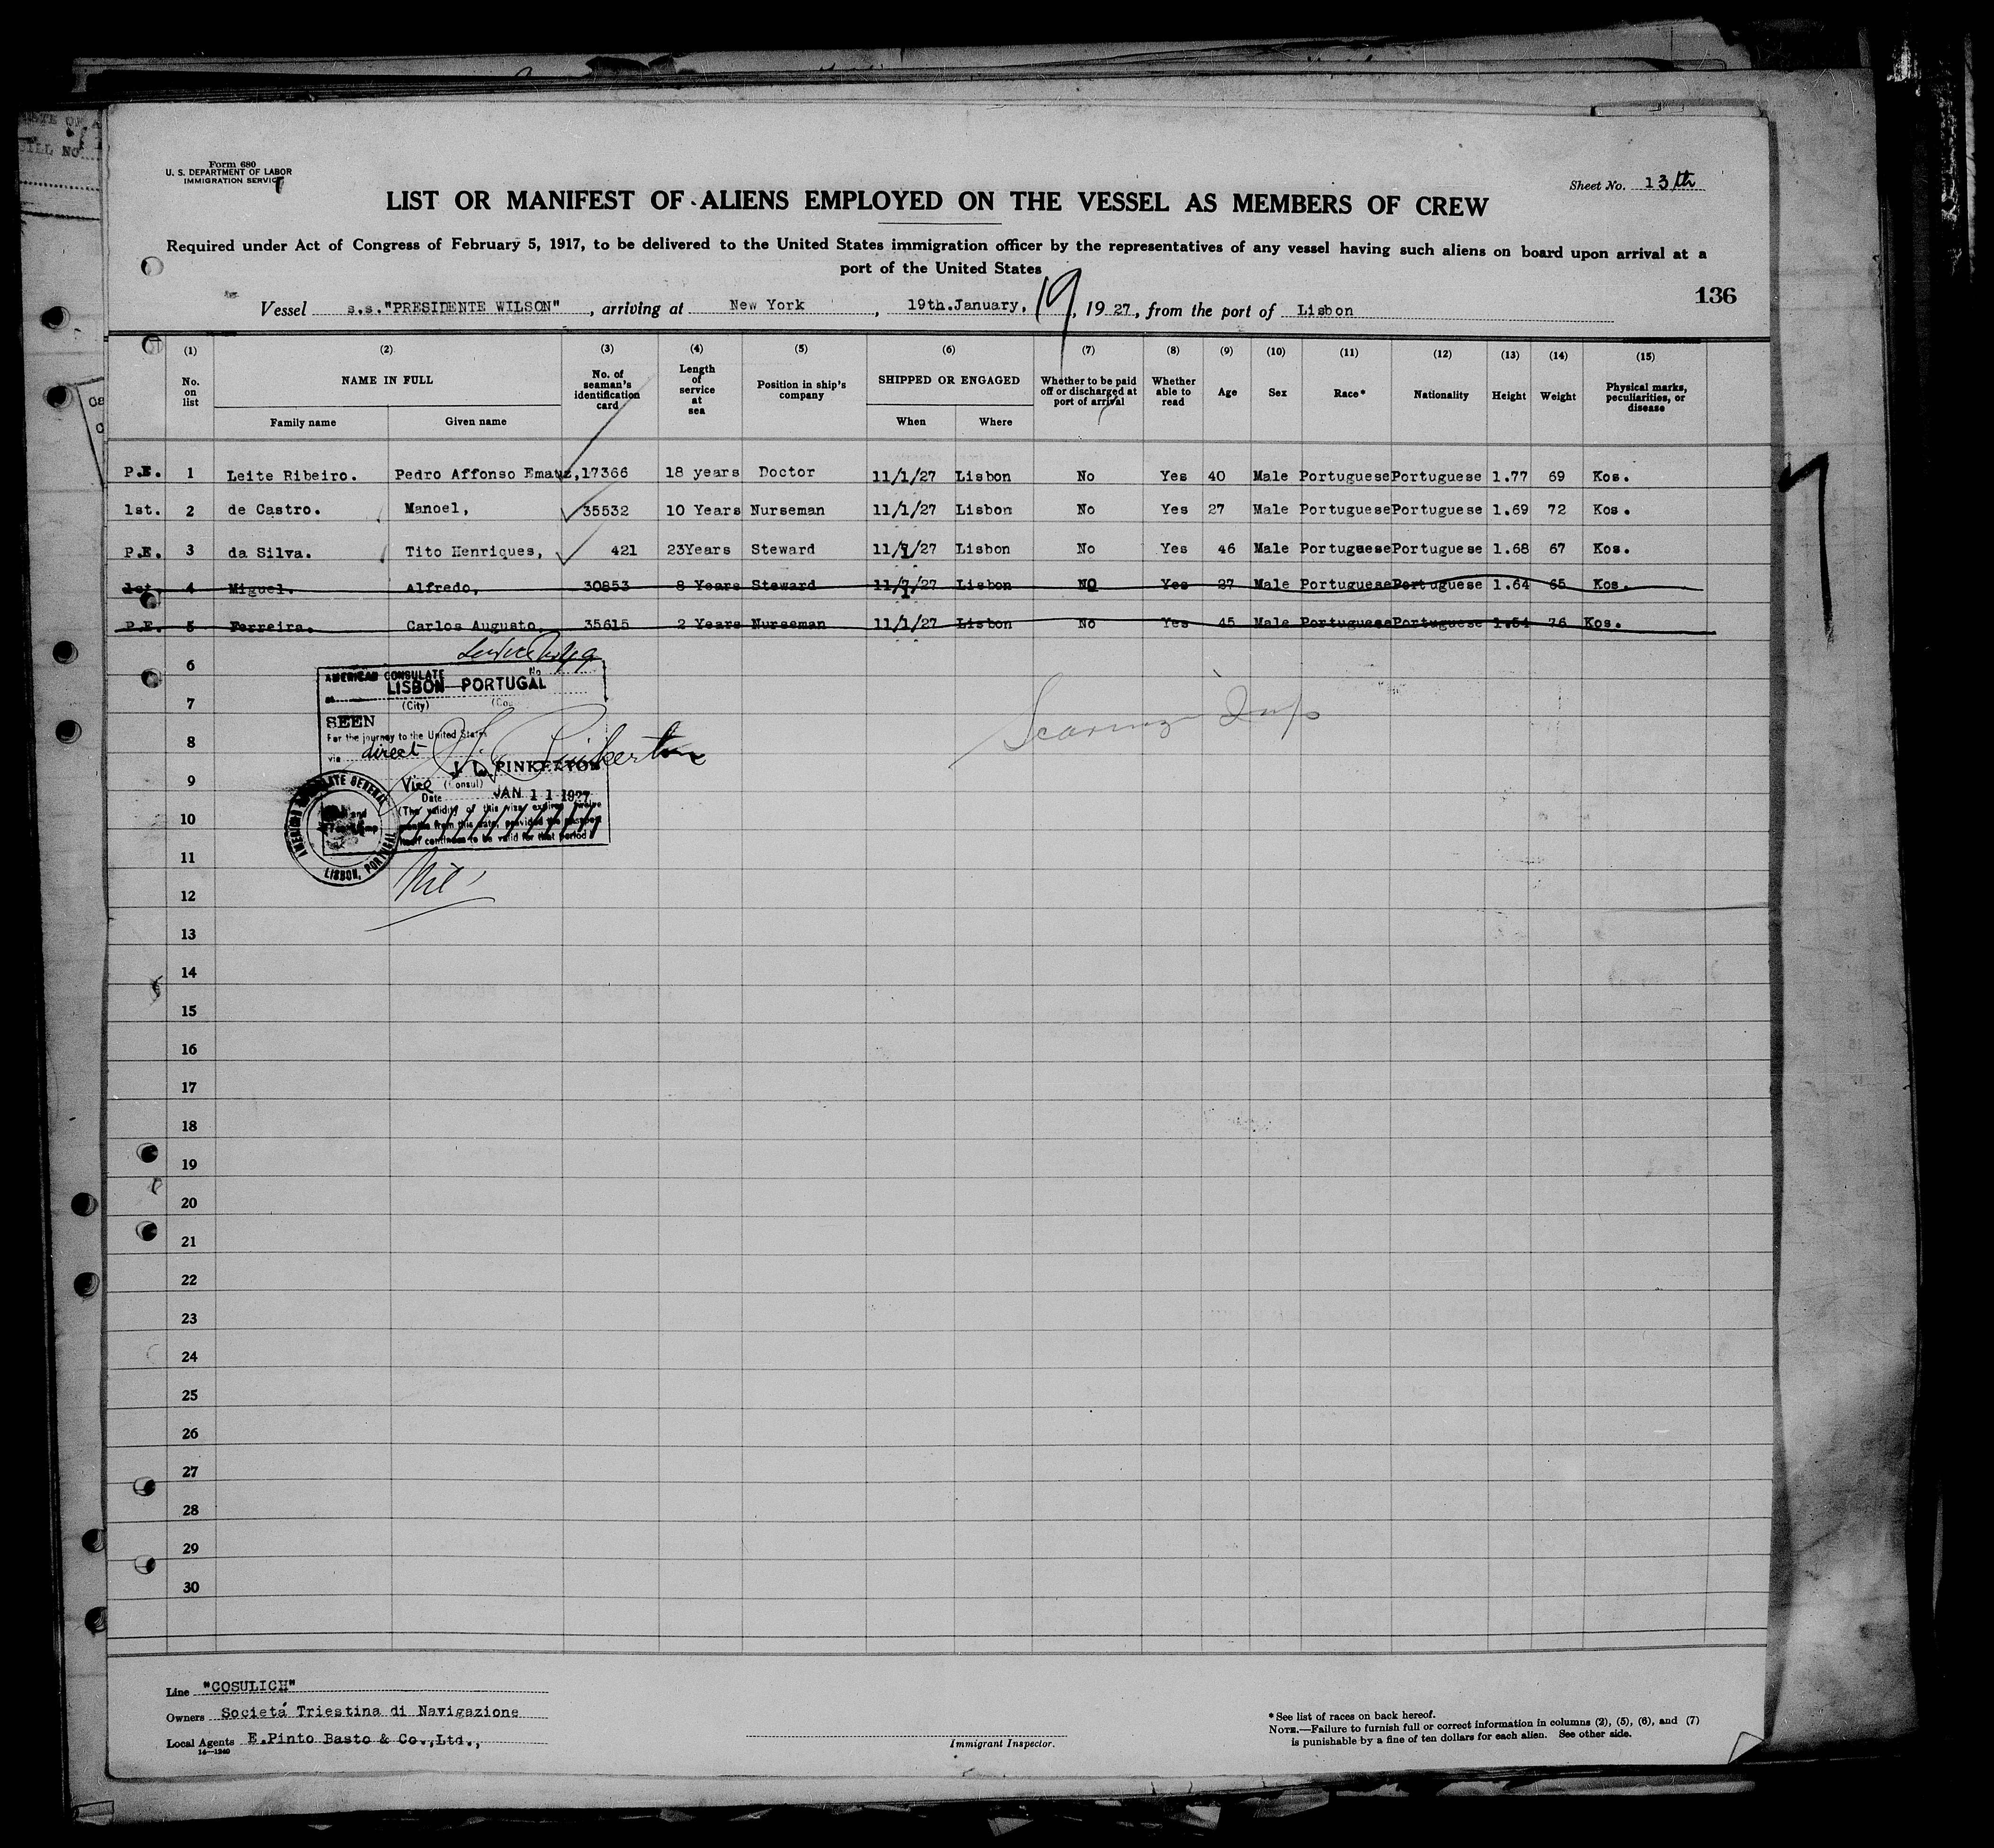 Form 680
U. S. DEPARTMENT OF LABOR
IMMIGRATION SERVICE
Sheet No. 13th
LIST OR MANIFEST OF ALIENS EMPLOYED ON THE VESSEL AS MEMBERS OF CREW
Required under Act of Congress of February 5, 1917, to be delivered to the United States immigration officer by the representatives of any vessel having such aliens on board upon arrival at a
port of the United States
136
Vessel s.s."PRESIDENTE WILSON", arriving at New York, 19th.January, 19, 1927, from the port of Lisbon
(1) (2) (3) (4) (5) (6) (7) (8) (9) (10) (11) (12) (13) (14) (15)
No. on list NAME IN FULL No. of seaman's identification card Length of service at sea Position in ship's company SHIPPED OR ENGAGED Whether to be paid off or discharged at port of arrival Whether able to read Age Sex Race* Nationality Height Weight Physical marks, peculiarities, or disease
Family name Given name When Where
P.E. 1 Leite Ribeiro. Pedro Affonso Emauz, 17366 18 years Doctor 11/1/27 Lisbon No Yes 40 Male Portuguese Portuguese 1.77 69 Kos.
1st. 2 de Castro. Manoel, 35532 10 Years Nurseman 11/1/27 Lisbon No Yes 27 Male Portuguese Portuguese 1.69 72 Kos.
P.E. 3 da Silva. Tito Henriques, 421 23Years Steward 11/1/27 Lisbon No Yes 46 Male Portuguese Portuguese 1.68 67 Kos.
1st. 4 Miguel. Alfredo, 30853 8 Years Steward 11/1/27 Lisbon NO Yes 27 Male Portuguese Portuguese 1.64 65 Kos.
P.E. 5 Ferreira. Carlos Augusto, 35615 2 Years Nurseman 11/1/27 Lisbon No Yes 45 Male Portuguese Portuguese 1.54 76 Kos.
6
AMERICAN CONSULATE No
LISBON—PORTUGAL
7
(City)
SEEN
For the journey to the United States
8
via direct
J. L. Pinkerton
J. L. PINKERTON
9
Vice (Consul)
Date JAN 11 1927
(The validity of this visa expires twelve
10
months from this date, provided the passport
itself continues to be valid for that period)
AMERICAN CONSULATE GENERAL
LISBON, PORTUGAL
11
Nil
12
13
14
15
16
17
18
19
20
21
22
23
24
25
26
27
28
29
30
Line "COSULICH"
Owners Societá Triestina di Navigazione
Local Agents E.Pinto Basto & Co.,Ltd.,
14—1240
Immigrant Inspector.
* See list of races on back hereof.
NOTE.—Failure to furnish full or correct information in columns (2), (5), (6), and (7)
is punishable by a fine of ten dollars for each alien. See other side.